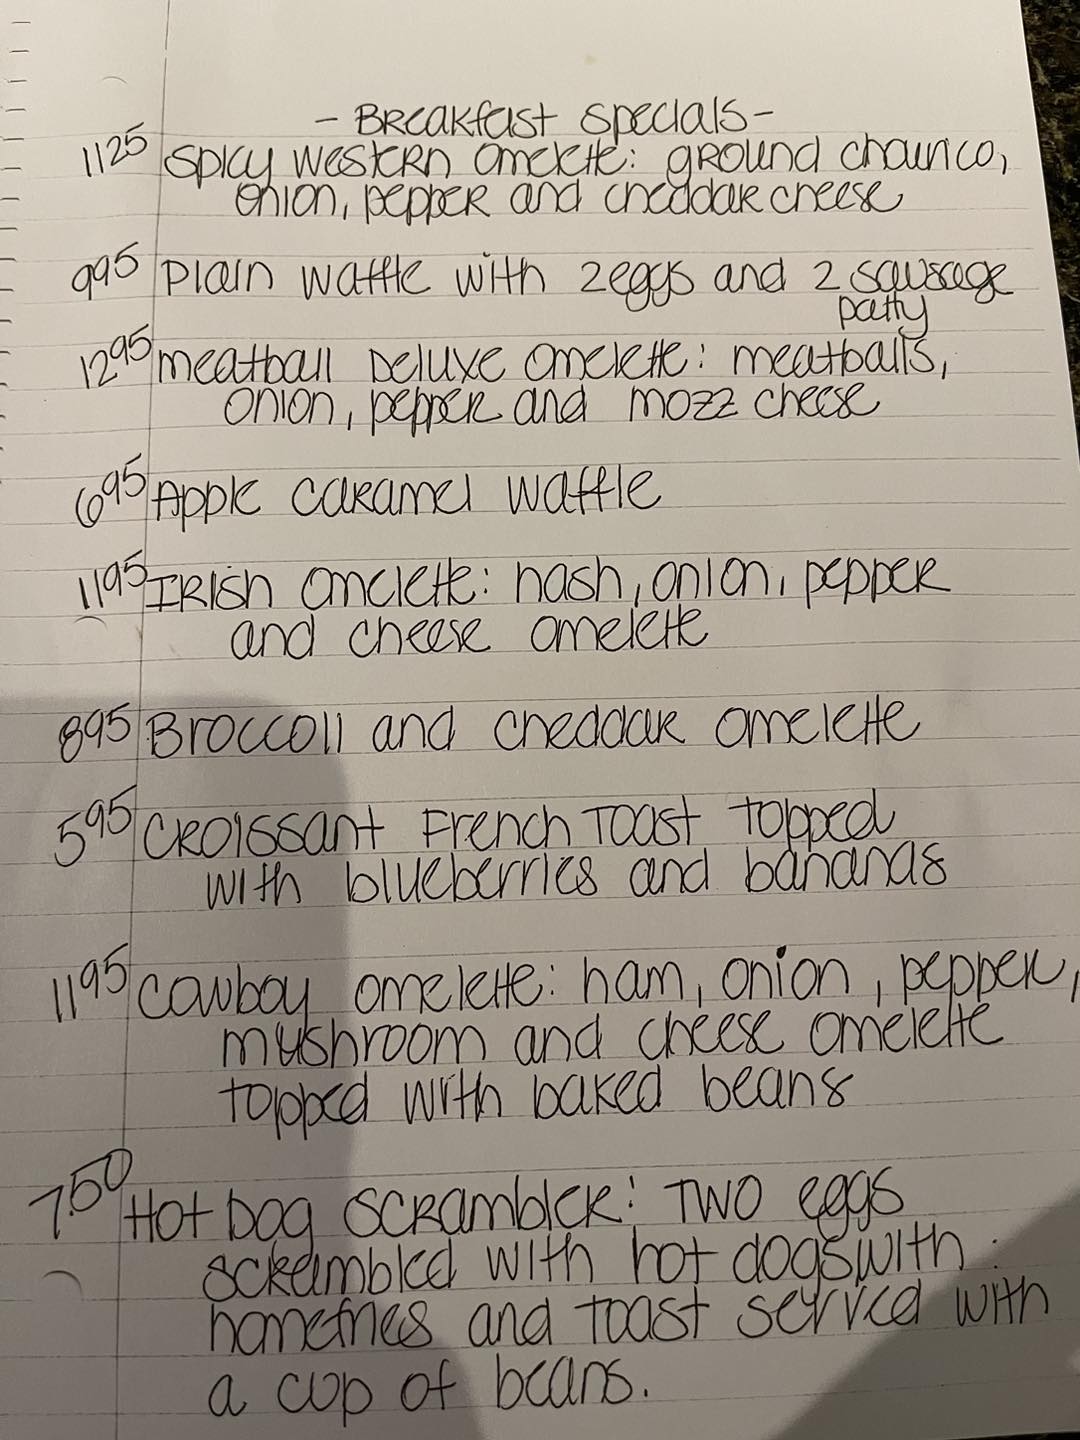 - Breakfast Specials -
1125 Spicy Western omelette: ground chourico,
onion, pepper and cheddar cheese
995 Plain waffle with 2 eggs and 2 sausage
patty
1295 meatball Deluxe omelette: meatballs,
onion, pepper and mozz cheese
695 Apple caramel waffle
1195 Irish omelette: hash, onion, pepper
and cheese omelette
895 Broccoli and cheddar omelette
595 Croissant French Toast topped
with blueberries and bananas
1195 Cowboy omelette: ham, onion, pepper,
mushroom and cheese omelette
topped with baked beans
7.50 Hot Dog Scrambler: Two eggs
scrambled with hot dogs with
homefries and toast served with
a cup of beans.